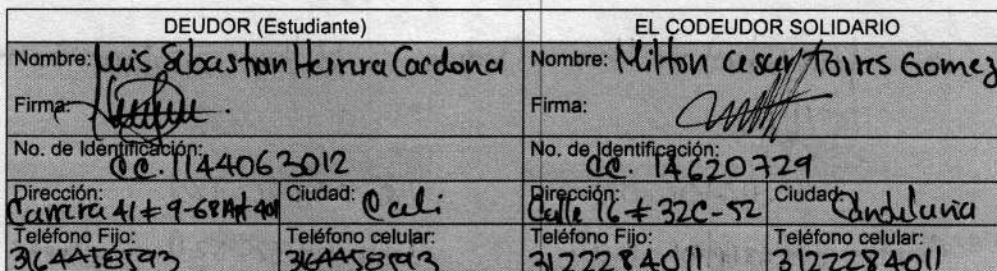 DEUDOR (Estudiante) EL CODEUDOR SOLIDARIO
Nombre: Luis Sebastian Herrera Cardona Nombre: Milton Cesar Torres Gomez
Firma: Firma:
No. de Identificación: CC. 1144063012 No. de Identificación: CC. 14620729
Dirección: Carrera 41 # 9-68 Apt 401 Ciudad: Cali Dirección: Calle 16 # 32C-52 Ciudad: Candelaria
Teléfono Fijo: 3164458593 Teléfono celular: 3164458593 Teléfono Fijo: 3122284011 Teléfono celular: 3122284011